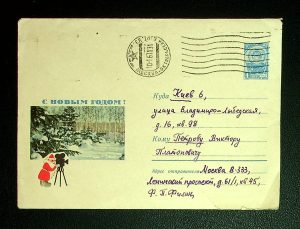 С НОВЫМ ГОДОМ!
Куда Киев 6,
улица Владимиро-Лыбедская,
д. 16, кв. 98
Кому Петрову Виктору
Платоновичу
Адрес отправителя: Москва В-333,
Ленинский проспект, д. 61/1, кв. 95,
Ф. П. Филин